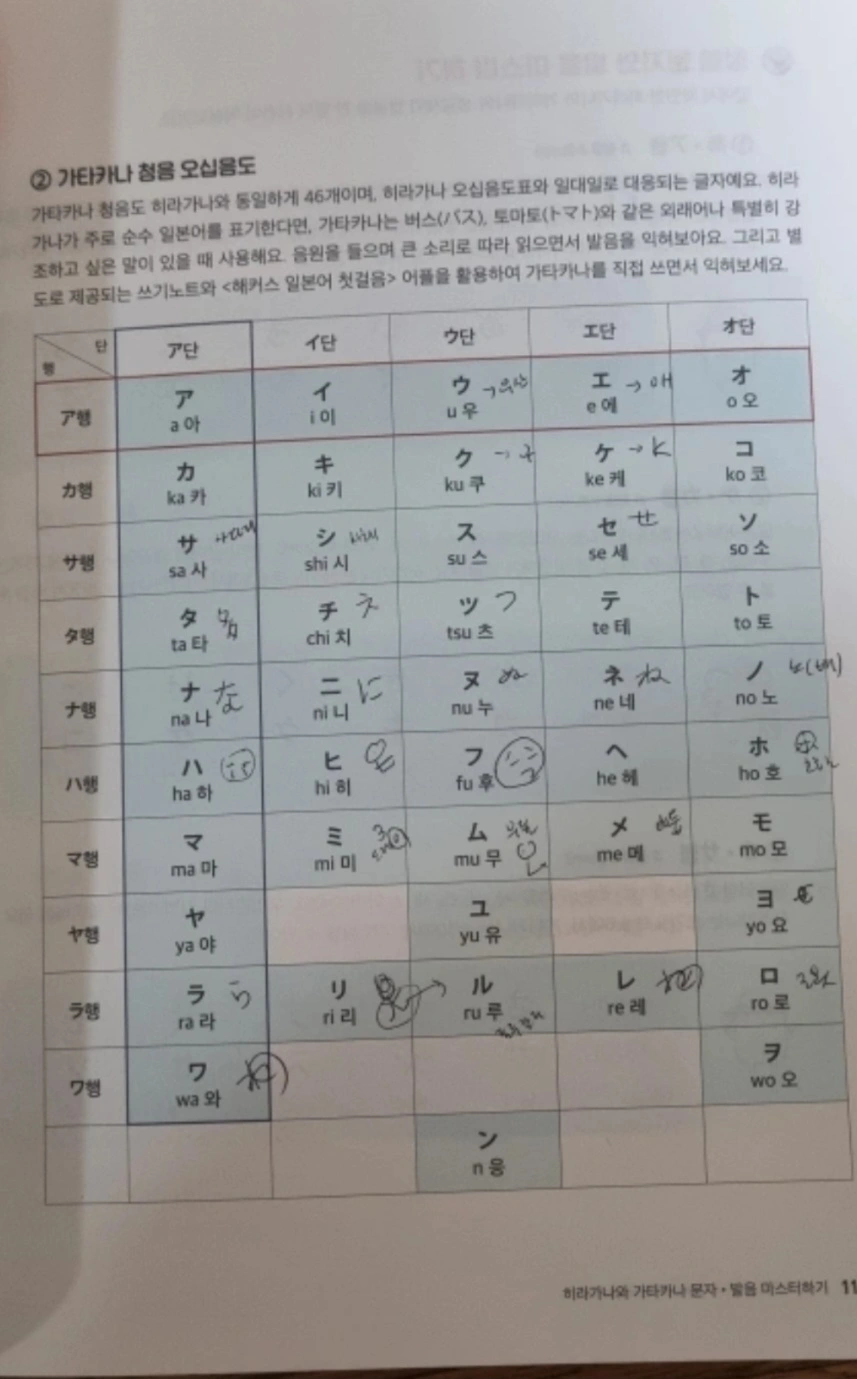 ② 가타카나 청음 오십음도
가타카나 청음도 히라가나와 동일하게 46개이며, 히라가나 오십음도표와 일대일로 대응되는 글자예요. 히라
가나가 주로 순수 일본어를 표기한다면, 가타카나는 버스(バス), 토마토(トマト)와 같은 외래어나 특별히 강
조하고 싶은 말이 있을 때 사용해요. 음원을 들으며 큰 소리로 따라 읽으면서 발음을 익혀보아요. 그리고 별
도로 제공되는 쓰기노트와 <해커스 일본어 첫걸음> 어플을 활용하여 가타카나를 직접 쓰면서 익혀보세요.
단 행 ア단 イ단 ウ단 エ단 オ단
ア행 ア イ ウ → 우산 エ → 애 オ
a 아 i 이 u 우 e 에 o 오
カ행 カ キ ク → 쿠 ケ → K コ
ka 카 ki 키 ku 쿠 ke 케 ko 코
サ행 サ シ ス セ せ ソ
sa 사 shi 시 su 스 se 세 so 소
タ행 タ チ ツ つ テ ト
ta 타 chi 치 tsu 츠 te 테 to 토
ナ행 ナ な ニ に ヌ ぬ ネ ね ノ
na 나 ni 니 nu 누 ne 네 no 노
ハ행 ハ ヒ フ ヘ ホ
ha 하 hi 히 fu 후 he 헤 ho 호
マ행 マ ミ 3 ム メ モ
ma 마 mi 미 mu 무 me 메 mo 모
ヤ행 ヤ ユ ヨ
ya 야 yu 유 yo 요
ラ행 ラ ら リ ル レ ロ
ra 라 ri 리 ru 루 re 레 ro 로
ワ행 ワ ヲ
wa 와 wo 오
ン
n 응
히라가나와 가타카나 문자・발음 마스터하기 11